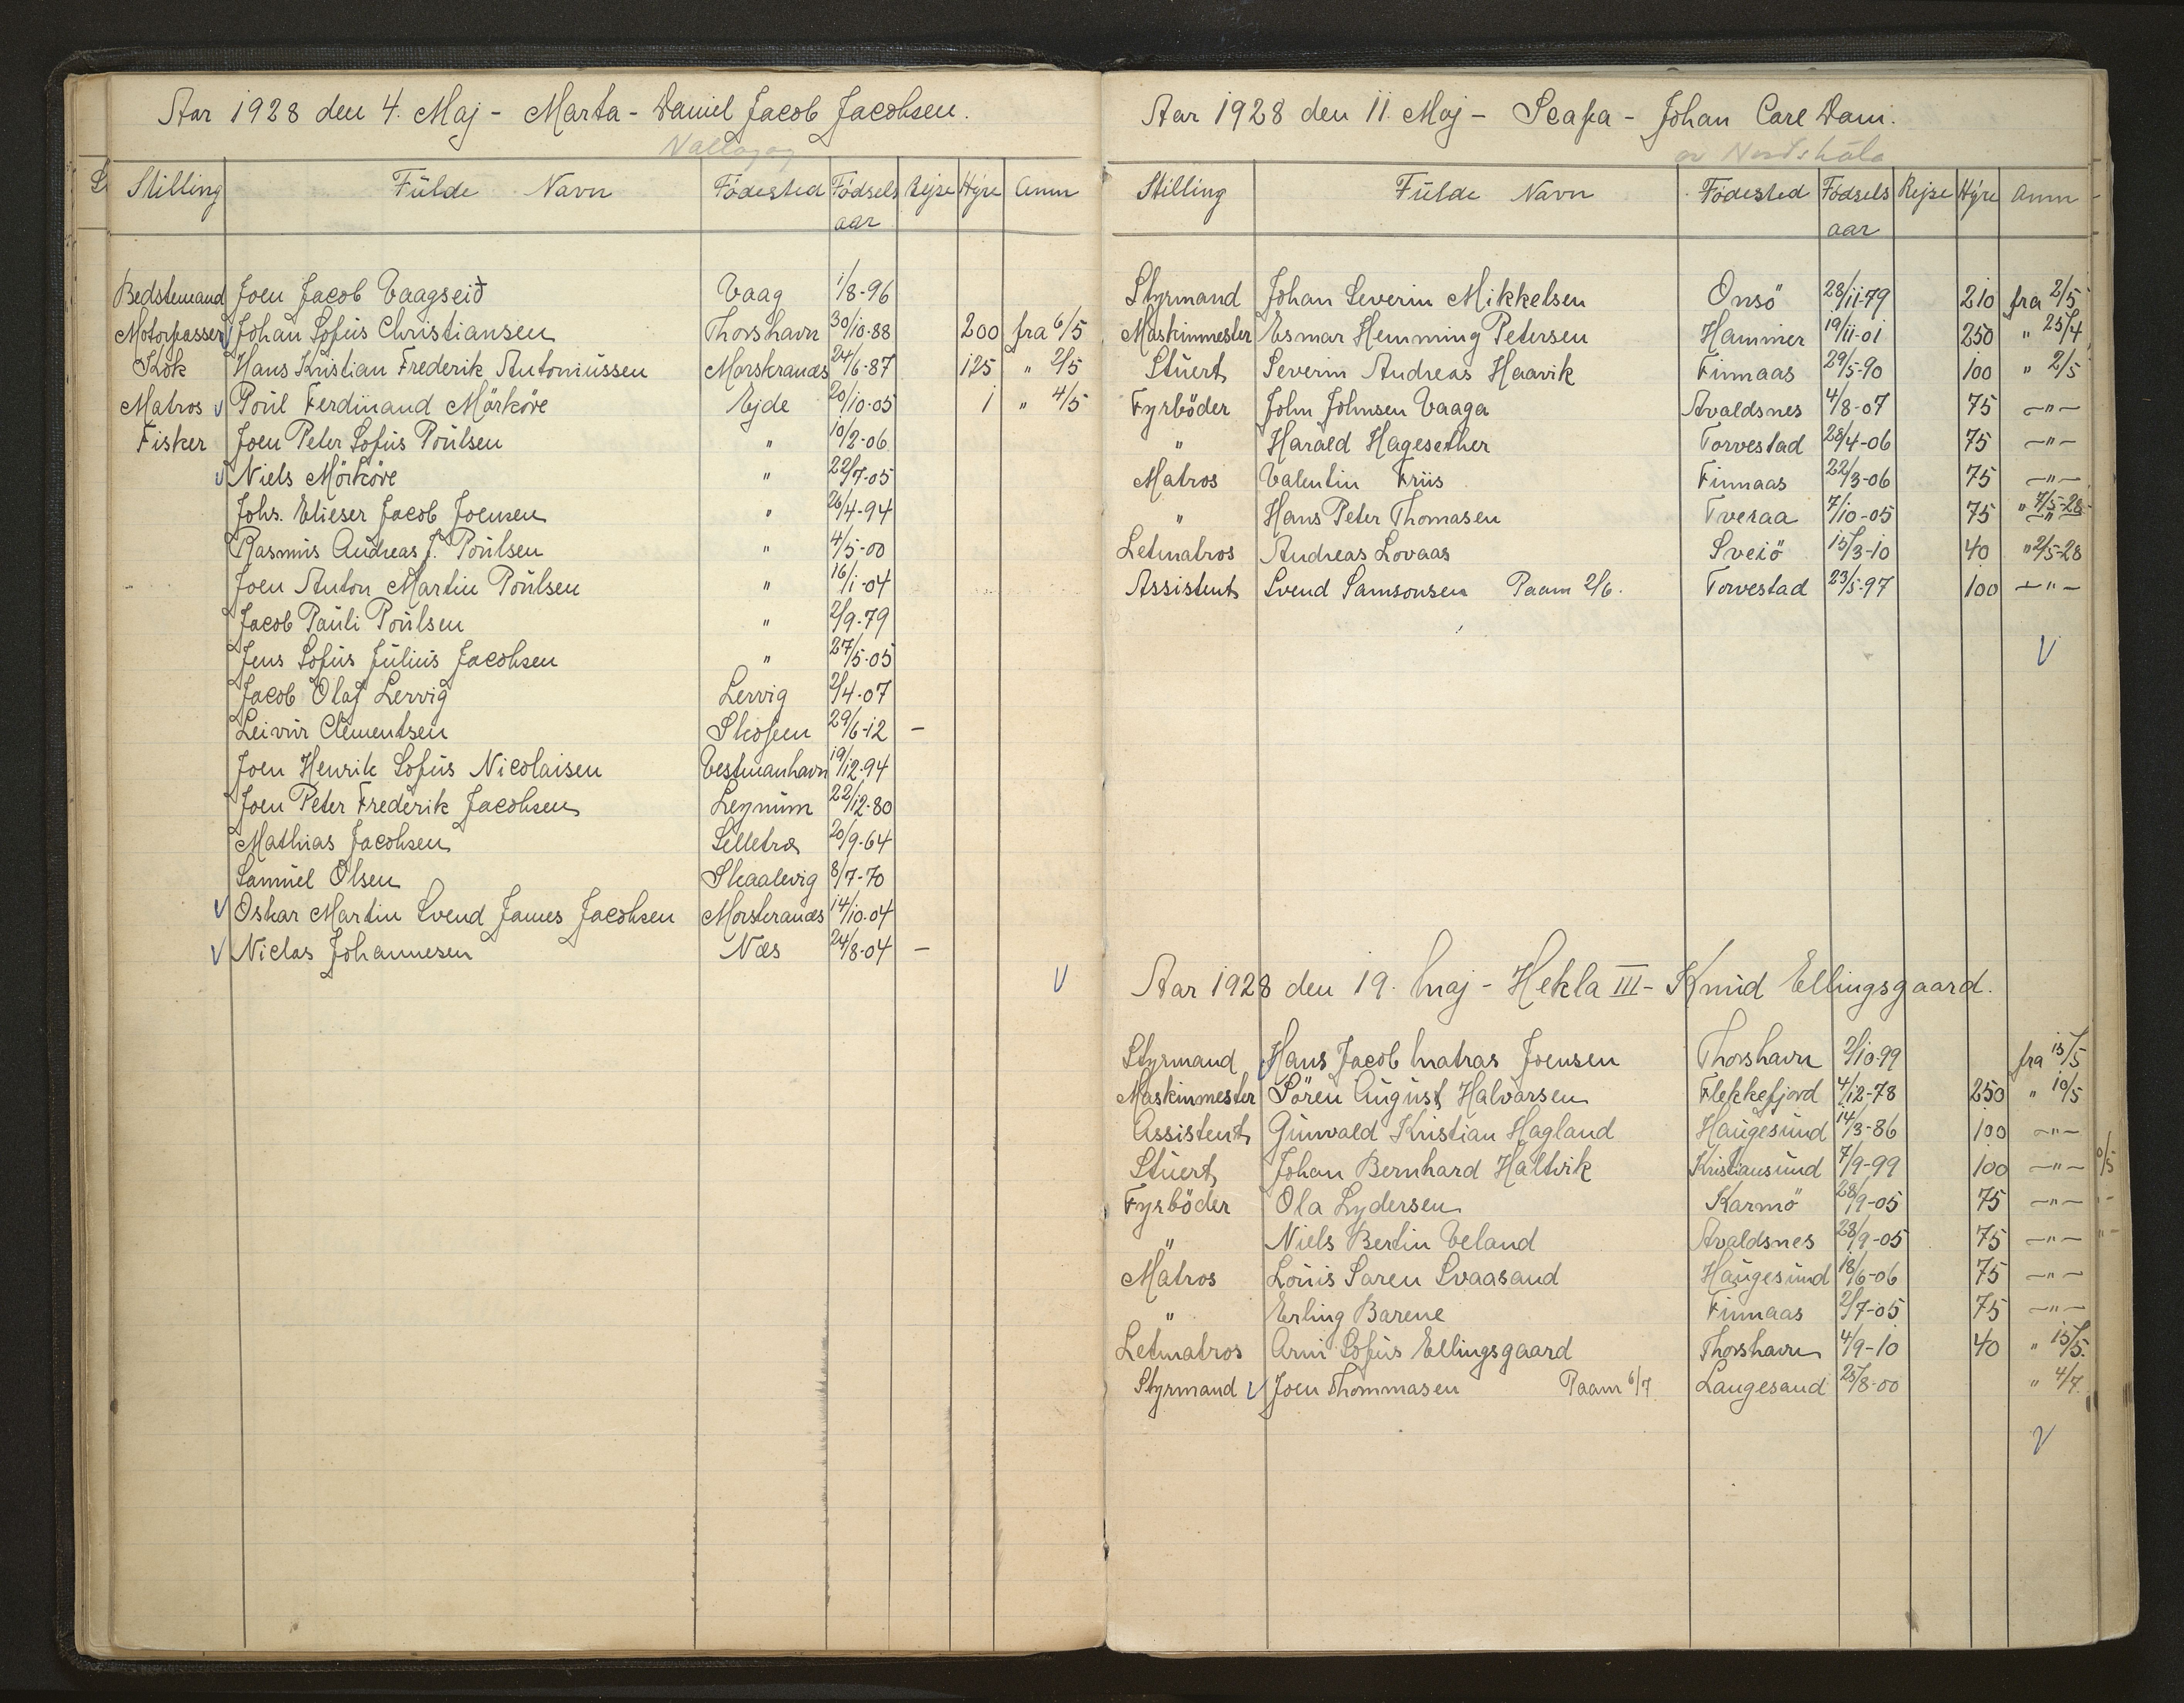 Aar 1928 den 4. Maj - Marta - Daniel Jacob Jacobsen.
Stilling Fulde Navn Födested Födsels aar Rejse Hyre Anm
Bedstemand Joen Jacob Vaagseið Vaag 1/8-96
Motorpasser Johan Sofus Christiansen Thorshavn 30/10-88 200 fra 6/5
Kok Hans Kristian Frederik Antoniussen Morskranæs 24/6-87 125 " 2/5
Matros v Poul Ferdinand Mörköre Ejde 20/10-05 1 " 4/5
Fisker Joen Peter Sofus Poulsen " 10/2-06
v Niels Mörköre " 22/7-05
Johs. Elieser Jacob Joensen " 26/4-94
Rasmus Andreas J. Poulsen " 4/5-00
Joen Anton Martin Poulsen " 16/1-04
Jacob Pauli Poulsen " 2/9-79
Jens Sofus Julius Jacobsen " 27/5-05
Jacob Olaf Lervig Lervig 2/4-07
Leivur Clementsen Skopen 29/6-12 -
Joen Henrik Sofus Nicolaisen Vestmanhavn 19/12-94
Joen Peter Frederik Jacobsen Leynum 22/12-80
Mathias Jacobsen Selletræ 20/9-64
Samuel Olsen Skaalevig 8/7-70
v Oskar Martin Svend James Jacobsen Morskranæs 14/10-04
v Niclas Johannesen Næs 24/8-04 -
v
Aar 1928 den 11. Maj - Scapa - Johan Carl Dam.
Stilling Fulde Navn Födested Födsels aar Rejse Hyre Anm
Styrmand Johan Severin Mikkelsen Onsö 28/11-79 210 fra 2/5
Maskinmester Esmar Hemming Petersen Hammer 19/11-01 250 " 25/4
Stuert Severin Andreas Haavik Finnaas 29/5-90 100 " 2/5
Fyrböder John Johnsen Vaaga Avaldsnes 4/8-07 75 -"-
" Harald Hagesether Torvestad 28/4-06 75 -"-
Matros Valentin Friis Finnaas 22/3-06 75 -"-
" Hans Peter Thomasen Tveraa 7/10-05 75 " 7/5-28
Letmatros Andreas Lovaas Sveiö 15/3-10 40 " 2/5-28
Assistent Svend Samsonsen Paam 2/6. Torvestad 23/5-97 100 -"-
v
Aar 1928 den 19. Maj - Hekla III - Knud Ellingsgaard.
Styrmand v Hans Jacob Matras Joensen Thorshavn 2/10-99 fra 15/5
Maskinmester Sören August Halvorsen Flekkefjord 4/12-78 250 " 10/5
Assistent Gunvald Kristian Hagland Haugesund 14/3-86 100 -"-
Stuert Johan Bernhard Haltvik Kristiansund 7/9-99 100 -"-
Fyrböder Ola Lydersen Karmö 28/9-05 75 -"-
" Niels Bertin Veland Avaldsnes 28/9-05 75 -"-
Matros Louis Saren Svaasand Haugesund 18/6-06 75 -"-
" Erling Barene Finnaas 2/7-05 75 -"-
Letmatros Arni Sofus Ellingsgaard Thorshavn 4/9-10 40 " 15/5.
Styrmand v Joen Thommasen Paam 6/7 Langesand 25/8-00 " 4/7.
v